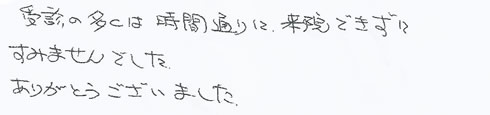 受診の多くは時間通りに、来院できずに
すみませんでした。
ありがとうございました。